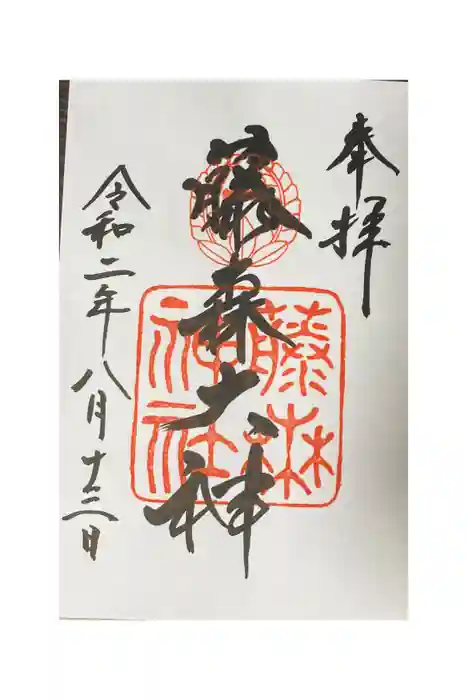 奉拝
藤森大神
藤森神社
令和二年八月十三日